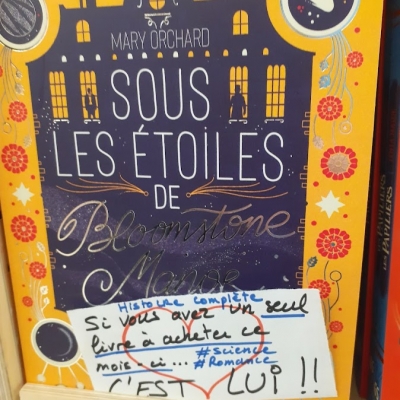 MARY ORCHARD
SOUS
LES ÉTOILES
DE
Bloomstone
Manor
Histoire complète
Si vous avez un seul
livre à acheter ce
mois-ci... #science
#Romance
C'EST LUI !!
PAPILLONS